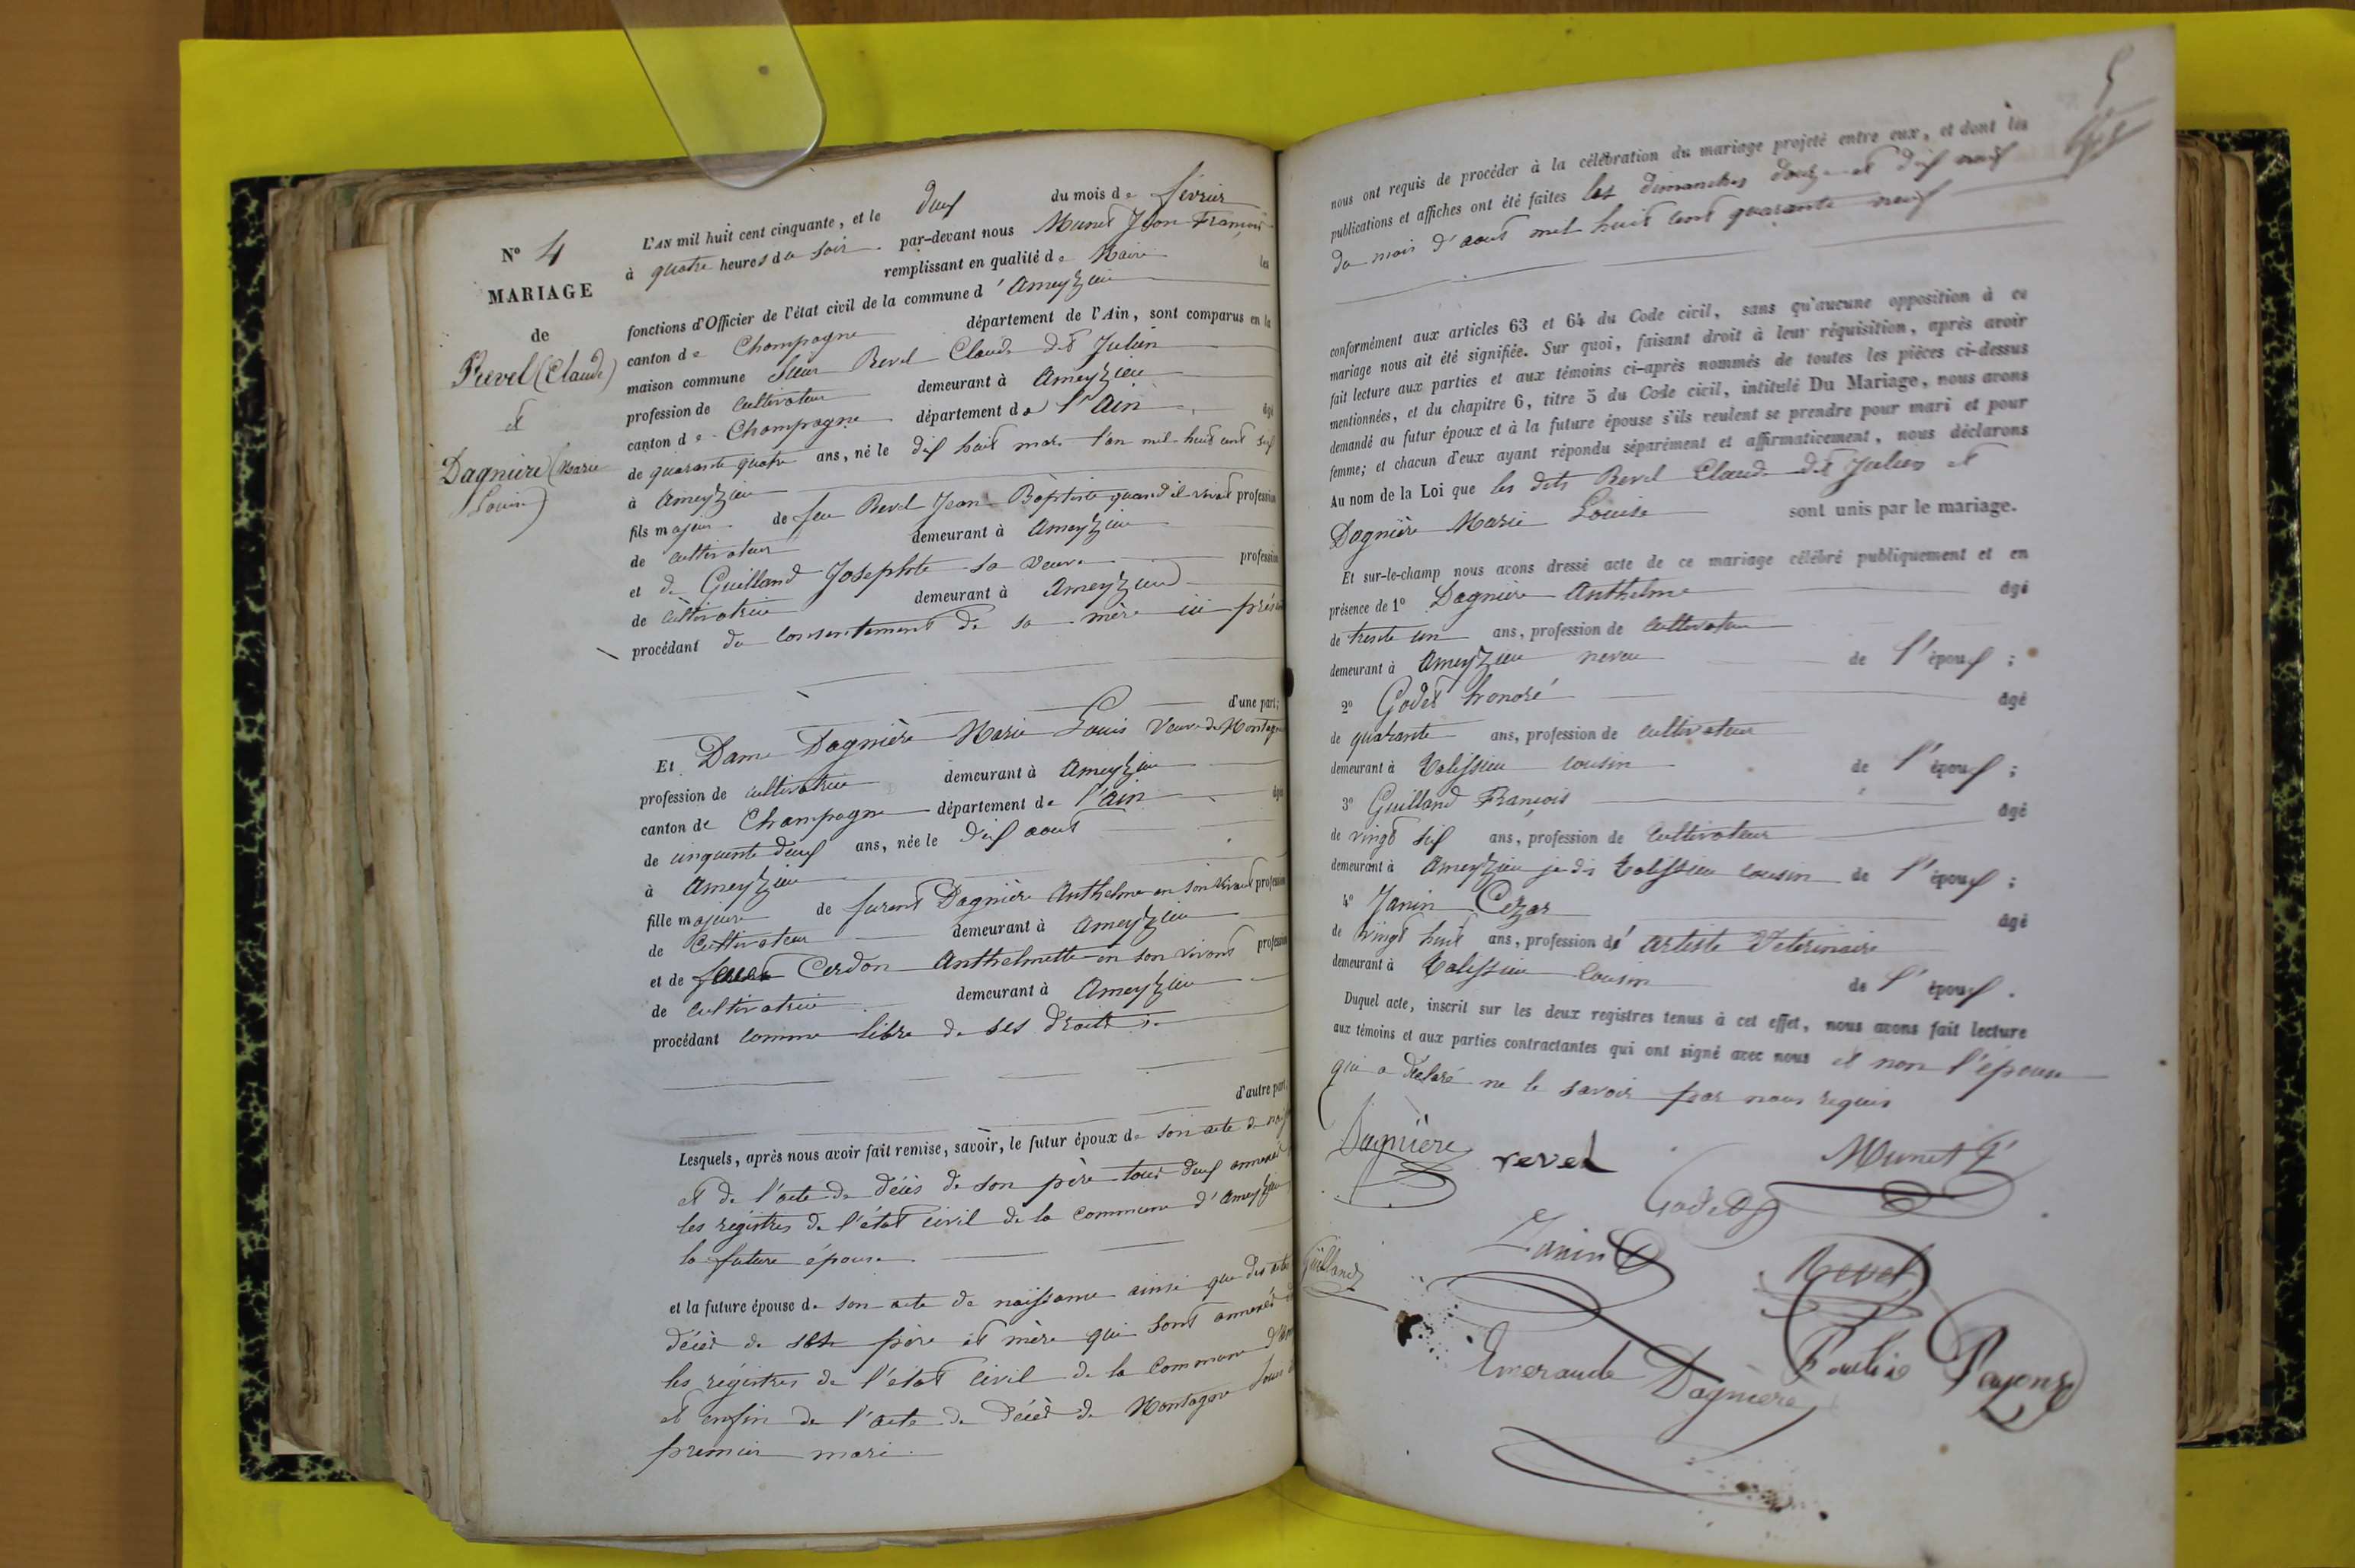 N° 4
MARIAGE
de
Revel (Claude)
et
Dagnière (Marie
Louise)
L'AN mil huit cent cinquante, et le deux du mois de février
à quatre heures du soir par-devant nous Munet Jean François
remplissant en qualité de Maire les
fonctions d'Officier de l'état civil de la commune d'Ameyzieu
canton de Champagne département de l'Ain, sont comparus en la
maison commune Sieur Revel Claude dit Julien
profession de cultivateur demeurant à Ameyzieu
canton de Champagne département de l'Ain âgé
de quarante quatre ans, né le dix huit mars l'an mil huit cent six
à Ameyzieu
fils majeur de feu Revel Jean Baptiste quand il vivait profession
de cultivateur demeurant à Ameyzieu
et de Guilland Josephte sa veuve profession
de cultivatrice demeurant à Ameyzieu
procédant du consentement de sa mère ici présente
d'une part;
Et Dame Dagnière Marie Louis veuve de Montagne
profession de cultivatrice demeurant à Ameyzieu
canton de Champagne département de l'Ain âgée
de cinquante deux ans, née le dix aout
à Ameyzieu
fille majeure de furent Dagnière Anthelme en son vivant profession
de cultivateur demeurant à Ameyzieu
et de Cerdon Anthelmette en son vivant profession
de cultivatrice demeurant à Ameyzieu
procédant comme libre de ses droits
d'autre part.
Lesquels, après nous avoir fait remise, savoir, le futur époux de son acte de
et de l'acte de décès de son père tous deux annexés
les régistres de l'état civil de la commune d'Ameyzieu
la future épouse
et la future épouse de son acte de naissance ainsi que des actes
décès de ses père et mère qui sont annexés
les régistres de l'état civil de la commune
et enfin de l'acte de décès de Montagne
premier mari
5
nous ont requis de procéder à la célébration du mariage projeté entre eux, et dont les
publications et affiches ont été faites les dimanches douze et dix neuf
du mois d'aout mil huit cent quarante neuf
conformément aux articles 63 et 64 du Code civil, sans qu'aucune opposition à ce
mariage nous ait été signifiée. Sur quoi, faisant droit à leur réquisition, après avoir
fait lecture aux parties et aux témoins ci-après nommés de toutes les pièces ci-dessus
mentionnées, et du chapitre 6, titre 5 du Code civil, intitulé Du Mariage, nous avons
demandé au futur époux et à la future épouse s'ils veulent se prendre pour mari et pour
femme; et chacun d'eux ayant répondu séparément et affirmativement, nous déclarons
Au nom de la Loi que les dits Revel Claude dit Julien et
Dagnière Marie Louise sont unis par le mariage.
Et sur-le-champ nous avons dressé acte de ce mariage célébré publiquement et en
présence de 1° Dagnière Anthelme âgé
de trente un ans, profession de cultivateur
demeurant à Ameyzieu neveu de l'époux;
2° Godet honoré âgé
de quarante ans, profession de cultivateur
demeurant à Talissieu cousin de l'époux;
3° Guilland François âgé
de vingt six ans, profession de cultivateur
demeurant à Ameyzieu je dis Talissieu cousin de l'époux;
4° Janin Cezar âgé
de vingt huit ans, profession d'artiste Vétérinaire
demeurant à Talissieu cousin de l'époux.
Duquel acte, inscrit sur les deux registres tenus à cet effet, nous avons fait lecture
aux témoins et aux parties contractantes qui ont signé avec nous et non l'épouse
qui a déclaré ne le savoir par nous requis
Dagnière revel Munet
Godet
Janin Revel
Guilland
Emeraude Dagnière